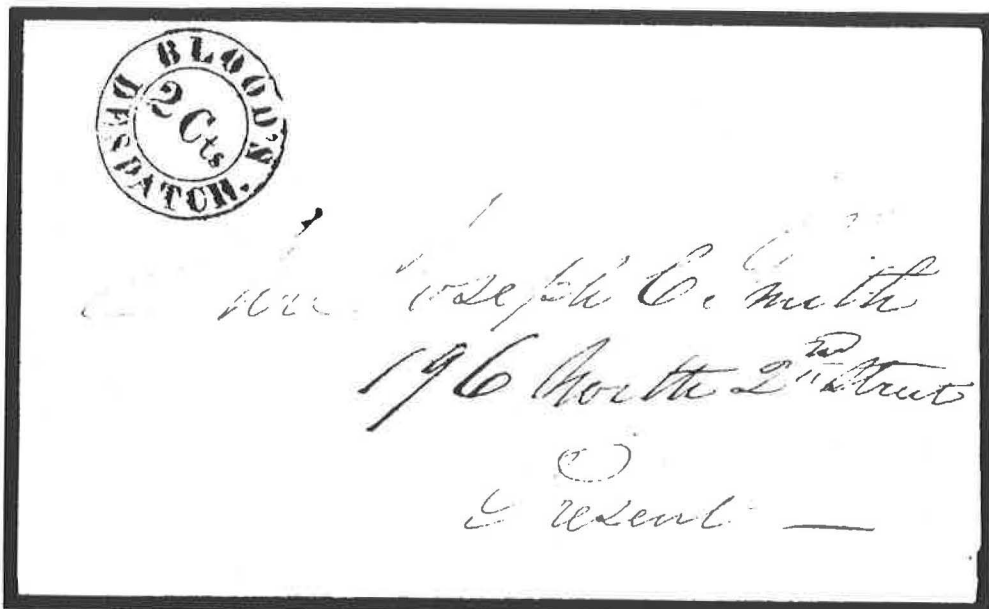 BLOOD'S
DESPATCH.
2 Cts
Mr Joseph C. Smith
196 North 2nd Street
Present —